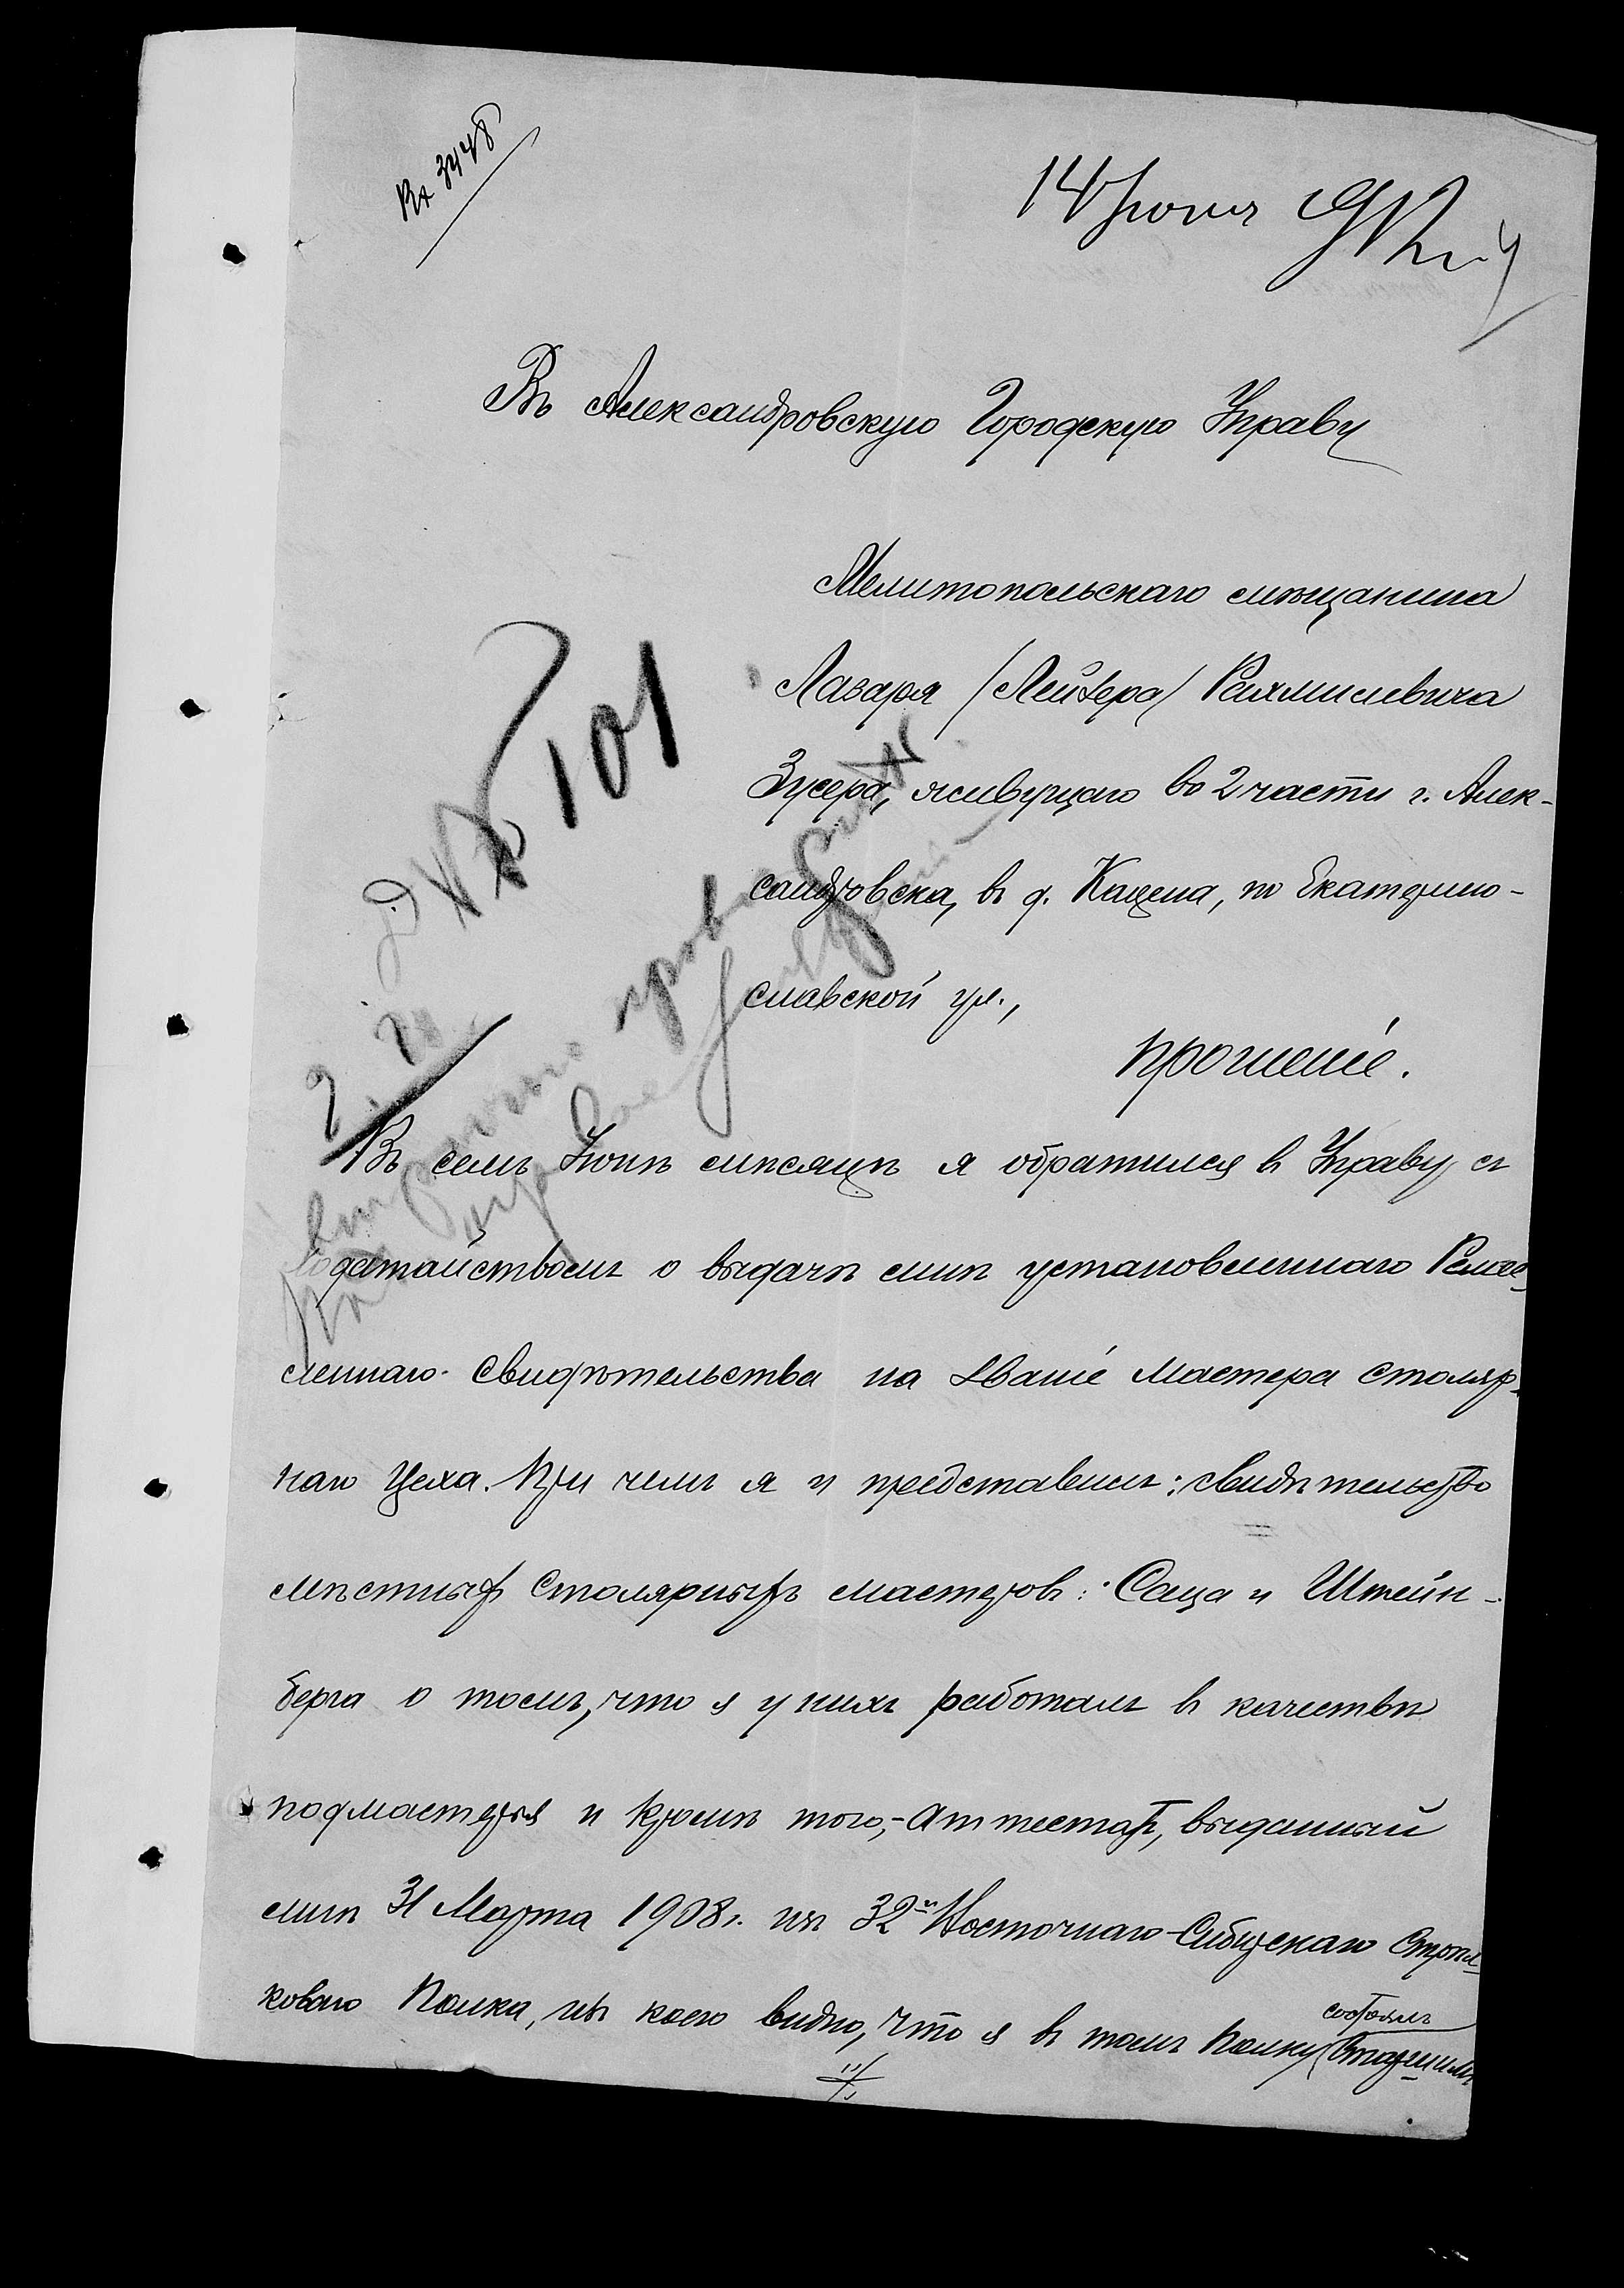 Вх 3448
14 Іюня
Въ Александровскую Городскую Управу
Мелитопольскаго мѣщанина
Лазаря (Лейзера) Рахмилевича
Зусера, живущаго во 2 части г. Алек-
сандровска, в д. Кацена, по Екатерино-
славской ул.,
прошеніе.
№ 101
Въ семъ Іюнѣ мѣсяцѣ я обратился в Управу съ
ходатайствомъ о выдачѣ мнѣ установленнаго Ремес-
леннаго свидѣтельства на званіе мастера столяр-
наго цеха. При чемъ я и представилъ: свидѣтельство
мѣстныхъ столярныхъ мастеровъ: Саца и Штейн-
берга о томъ, что я у нихъ работалъ в качествѣ
подмастерья и кромѣ того,- аттестатъ, выданный
мнѣ 31 Марта 1908 г. изъ 32го Восточнаго-Сибирскаго Стрѣл-
коваго Полка, изъ коего видно, что я въ томъ полку состоялъ старшимъ